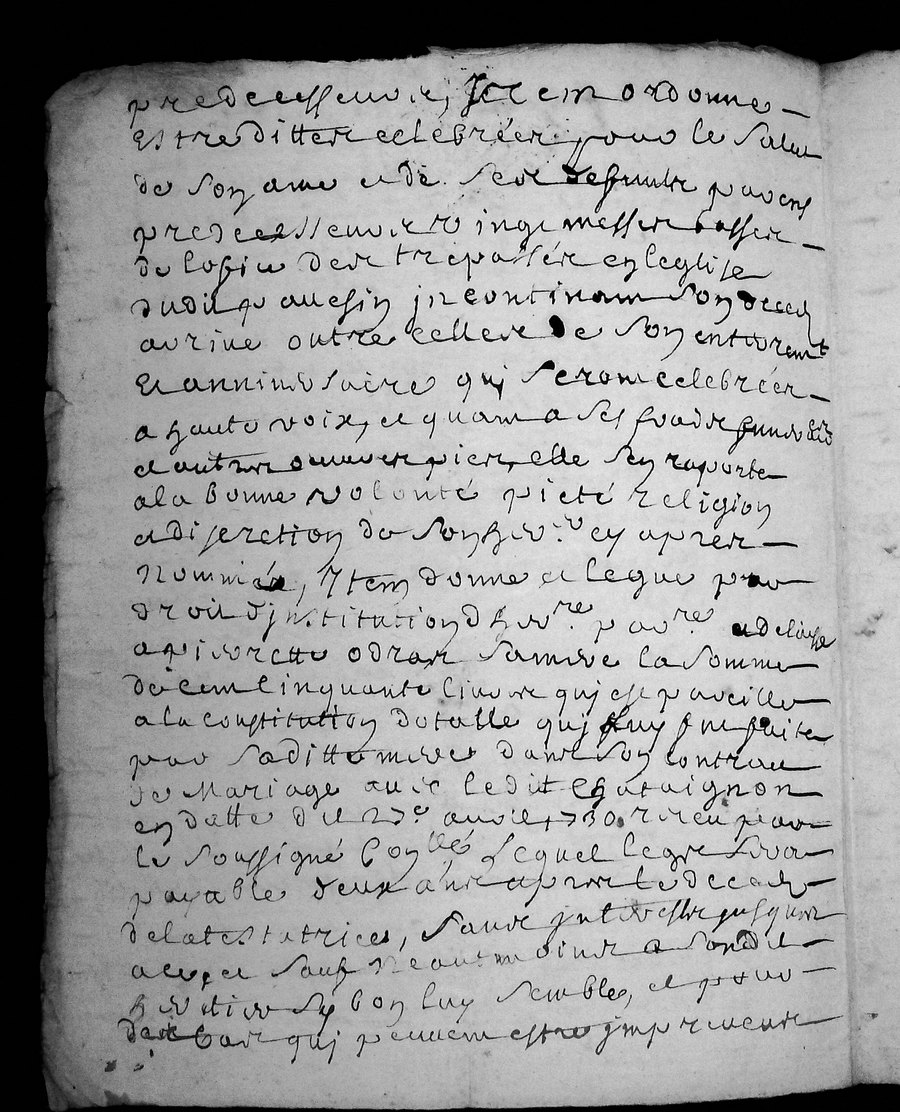 predecesseurs, Item ordonne
Estre dittes celebrées pour le salut
de son ame et de ses defunts parens
predecesseurs vingt messes basses
de lofice des trepassés en leglise
dudit pauesin incontinant son deceds
arrivé outre celles de son enterremt
Et anniversaire qui seront celebrées
a haute voix, et quant a ses fraids funeraires
et autres oeuvres pies, elle sen raporte
a la bonne volonté pieté religion
et discretion de son her.re cy apres
Nommée, Item donne et legue par
droit d'institution d'her.re par.re et delaisse
a pierrette odras sa mere la somme
de cent cinquante livres qui est pareille
a la constitution dotalle qui luy fut faite
par sa ditte mere dans son contrat
de Mariage avec ledit Chataignon
en datte du 27e avril 1730 receu par
le soussigné Con.llé Lequel legs sera
payable deux ans apres le deceds
de la testatrice, sans interests jusques
alors, et sauf neantmoins a son dit
heritier sy bon luy semble, et pour
des cas qui peuvent estre impreveus